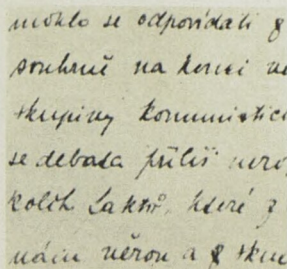 mohlo se odpovídati z
souhrně na konci
skupiny komunistic
se debata příliš
kolik taktů, které z
nám věrou a z sku